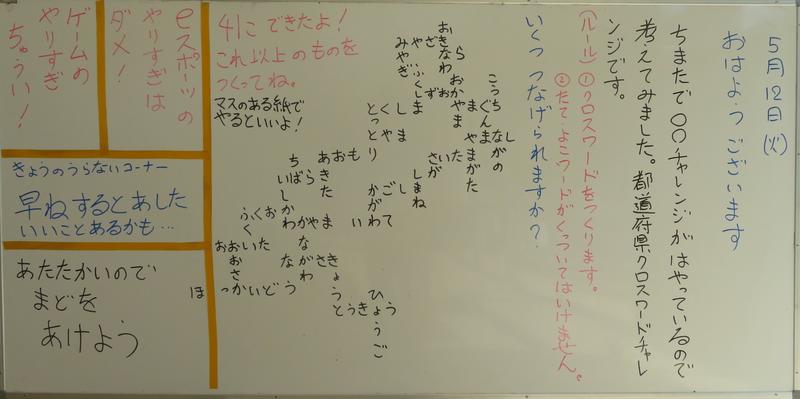 5月12日(火)
おはようございます
ちまたで〇〇チャレンジがはやっているので
考えてみました。都道府県クロスワードチャレ
ンジです。
(ルール)①クロスワードをつくります。
②たて、よこワードがくっついてはいけません。
いくつつなげられますか?
41こできたよ!
これ以上のものを
つくってね。
マスのある紙で
やるといいよ!
eスポーツの
やりすぎは
ダメ!
ゲームの
やりすぎ
ちゅうい!
きょうのうらないコーナー
早ねするとあした
いいことあるかも…
あたたかいので
まどを
あけよう
こうち
ぐんま
ながの
やまがた
おかやま
さいたま
さが
しまね
おきなわ
みやざき
みやぎ
ふくしま
とくしま
とっとり
とやま
あおもり
ちば
いばらき
あきた
いしかわ
かごしま
かがわ
わかやま
ふくおか
ふくい
おおいた
おおさか
かながわ
ながさき
きょうと
とうきょう
ひょうご
ほっかいどう